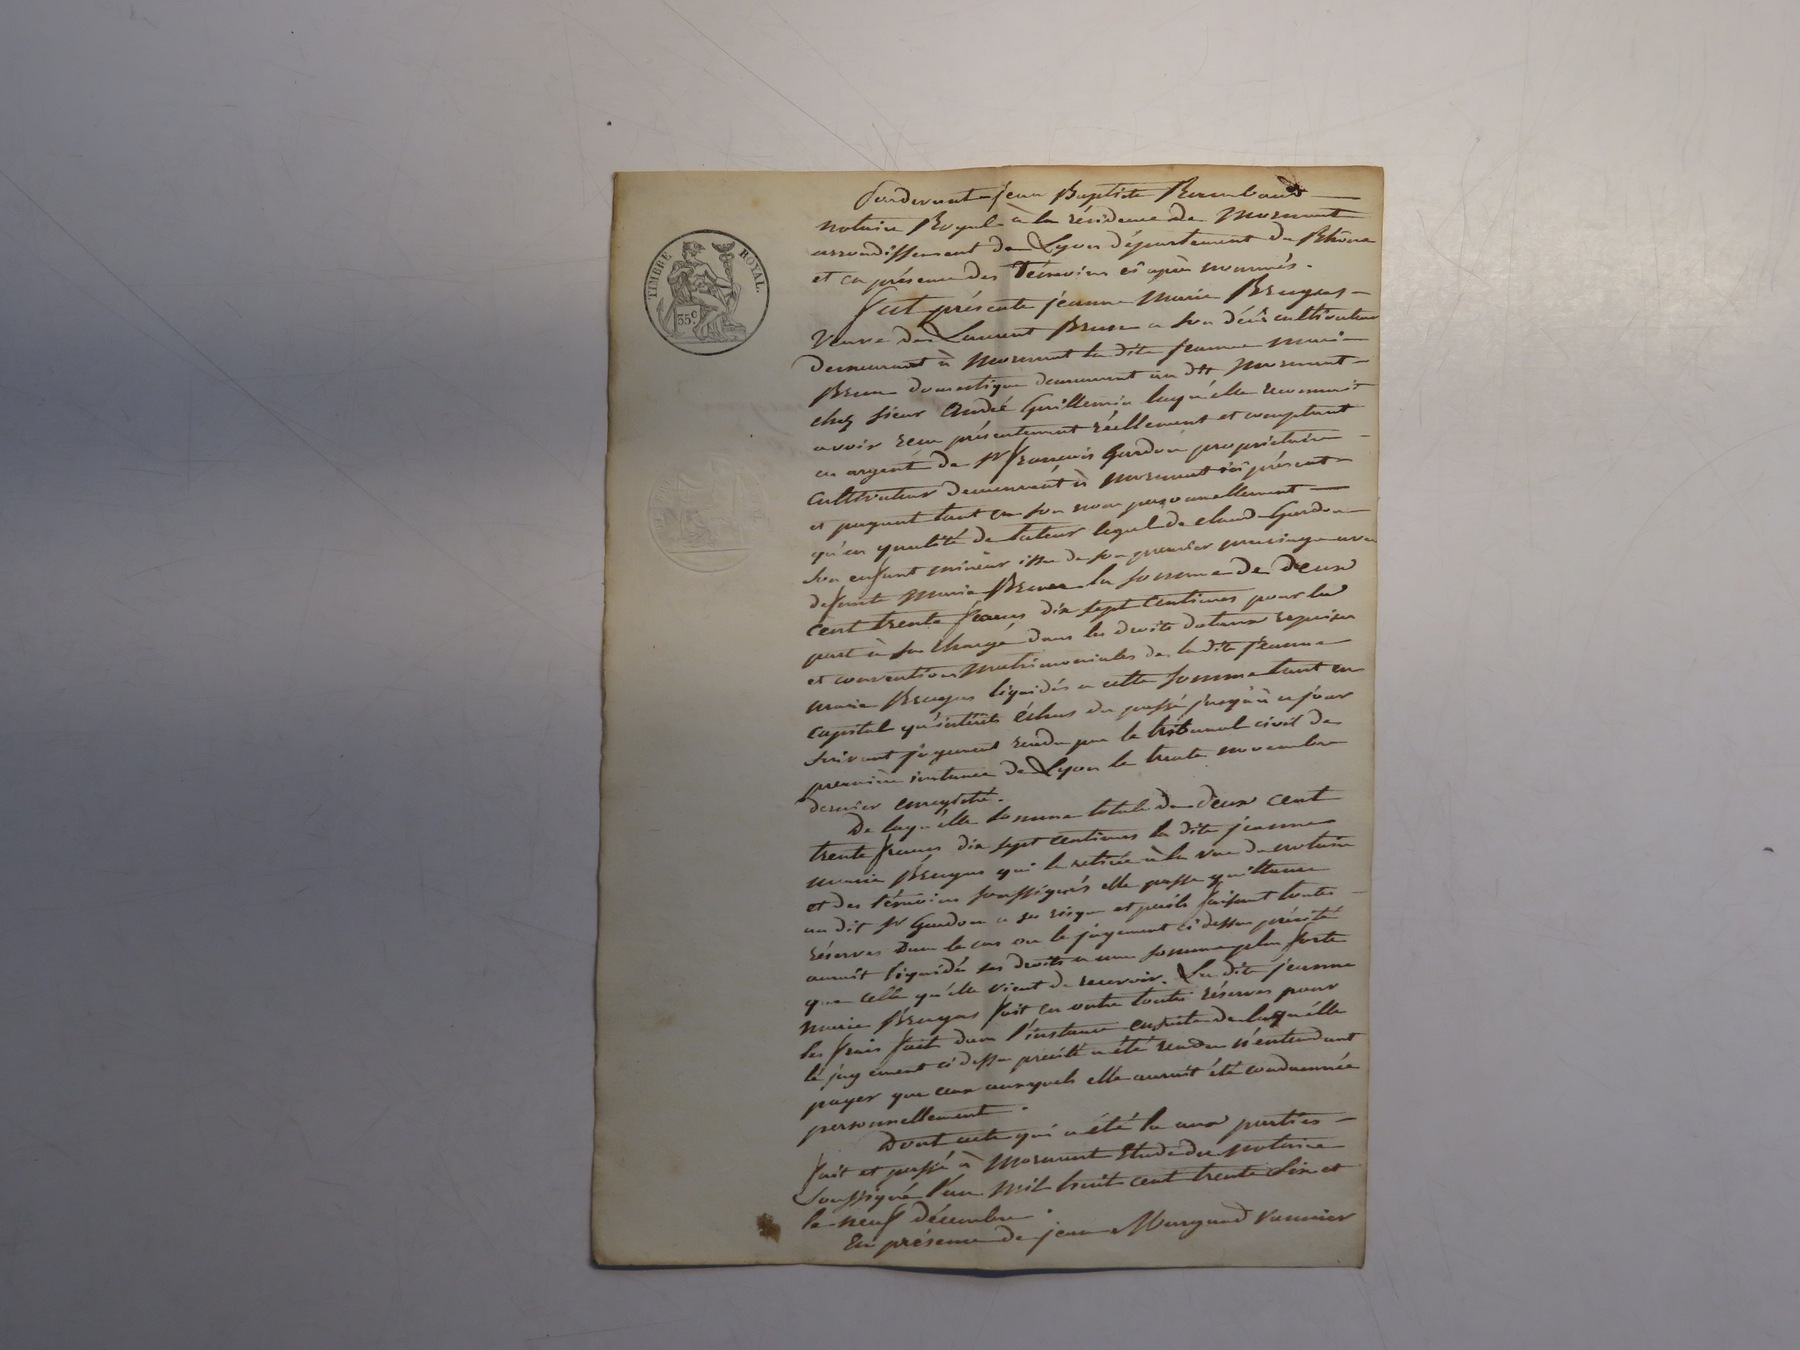 TIMBRE ROYAL.
35c
Pardevant jean Baptiste Rambaud
notaire Royal à la résidence de Mornant
arrondissement de Lyon département du Rhône
et en présence des Témoins ci après nommés.
fut présente jeanne Marie Bruyas
Veuve de Laurent Brun a son décès cultivateur
demeurant à Mornant la dite jeanne marie
domestique demeurant au dit Mornant
chez sieur André Guillermin laquelle reconnait
avoir recu présentement réellement et comptant
en argent de sr françois Gardon propriétaire
cultivateur demeurant à Mornant ici présent
et payant tant en son nom personnellement
qu'en qualité de tuteur légal de claude Gardon
son enfant mineur issu de son premier mariage avec
defunte Marie Brun la somme de deux
cent trente francs dix sept centimes pour la
part à sa charge dans les droits dotaux reprises
et conventions Matrimoniales de la dite jeanne
marie Bruyas liquidés a cette somme tant en
capital qu'intérêts échus du passé jusqu'à ce jour
suivant jugement rendu par le tribunal civil de
première instance de Lyon le trente novembre
dernier enregistré.
De laquelle somme totale de deux cent
trente francs dix sept centimes la dite jeanne
marie Bruyas qui la retirée à la vue du notaire
et des témoins soussignés elle passe quittance
au dit sr Gardon a ses risque et perils faisant toutes
réserves dans le cas ou le jugement ci dessus précité
auroit liquidé ses droits a une somme plus forte
que celle qu'elle vient de recevoir. La dite jeanne
Marie Bruyas fait en outre toutes réserves pour
les frais fait dans l'instance ensuite de laquélle
le jugement ci dessus précité a été rendu n'entendant
payer que ceux auxquels elle auroit été condamnée
personnellement.
Dont acte qui a été lu aux parties
fait et passé à Mornant Etude du notaire
Soussigné l'an Mil huit cent trente Six et
le neuf décembre.
En présence de jean Murgand Vannier